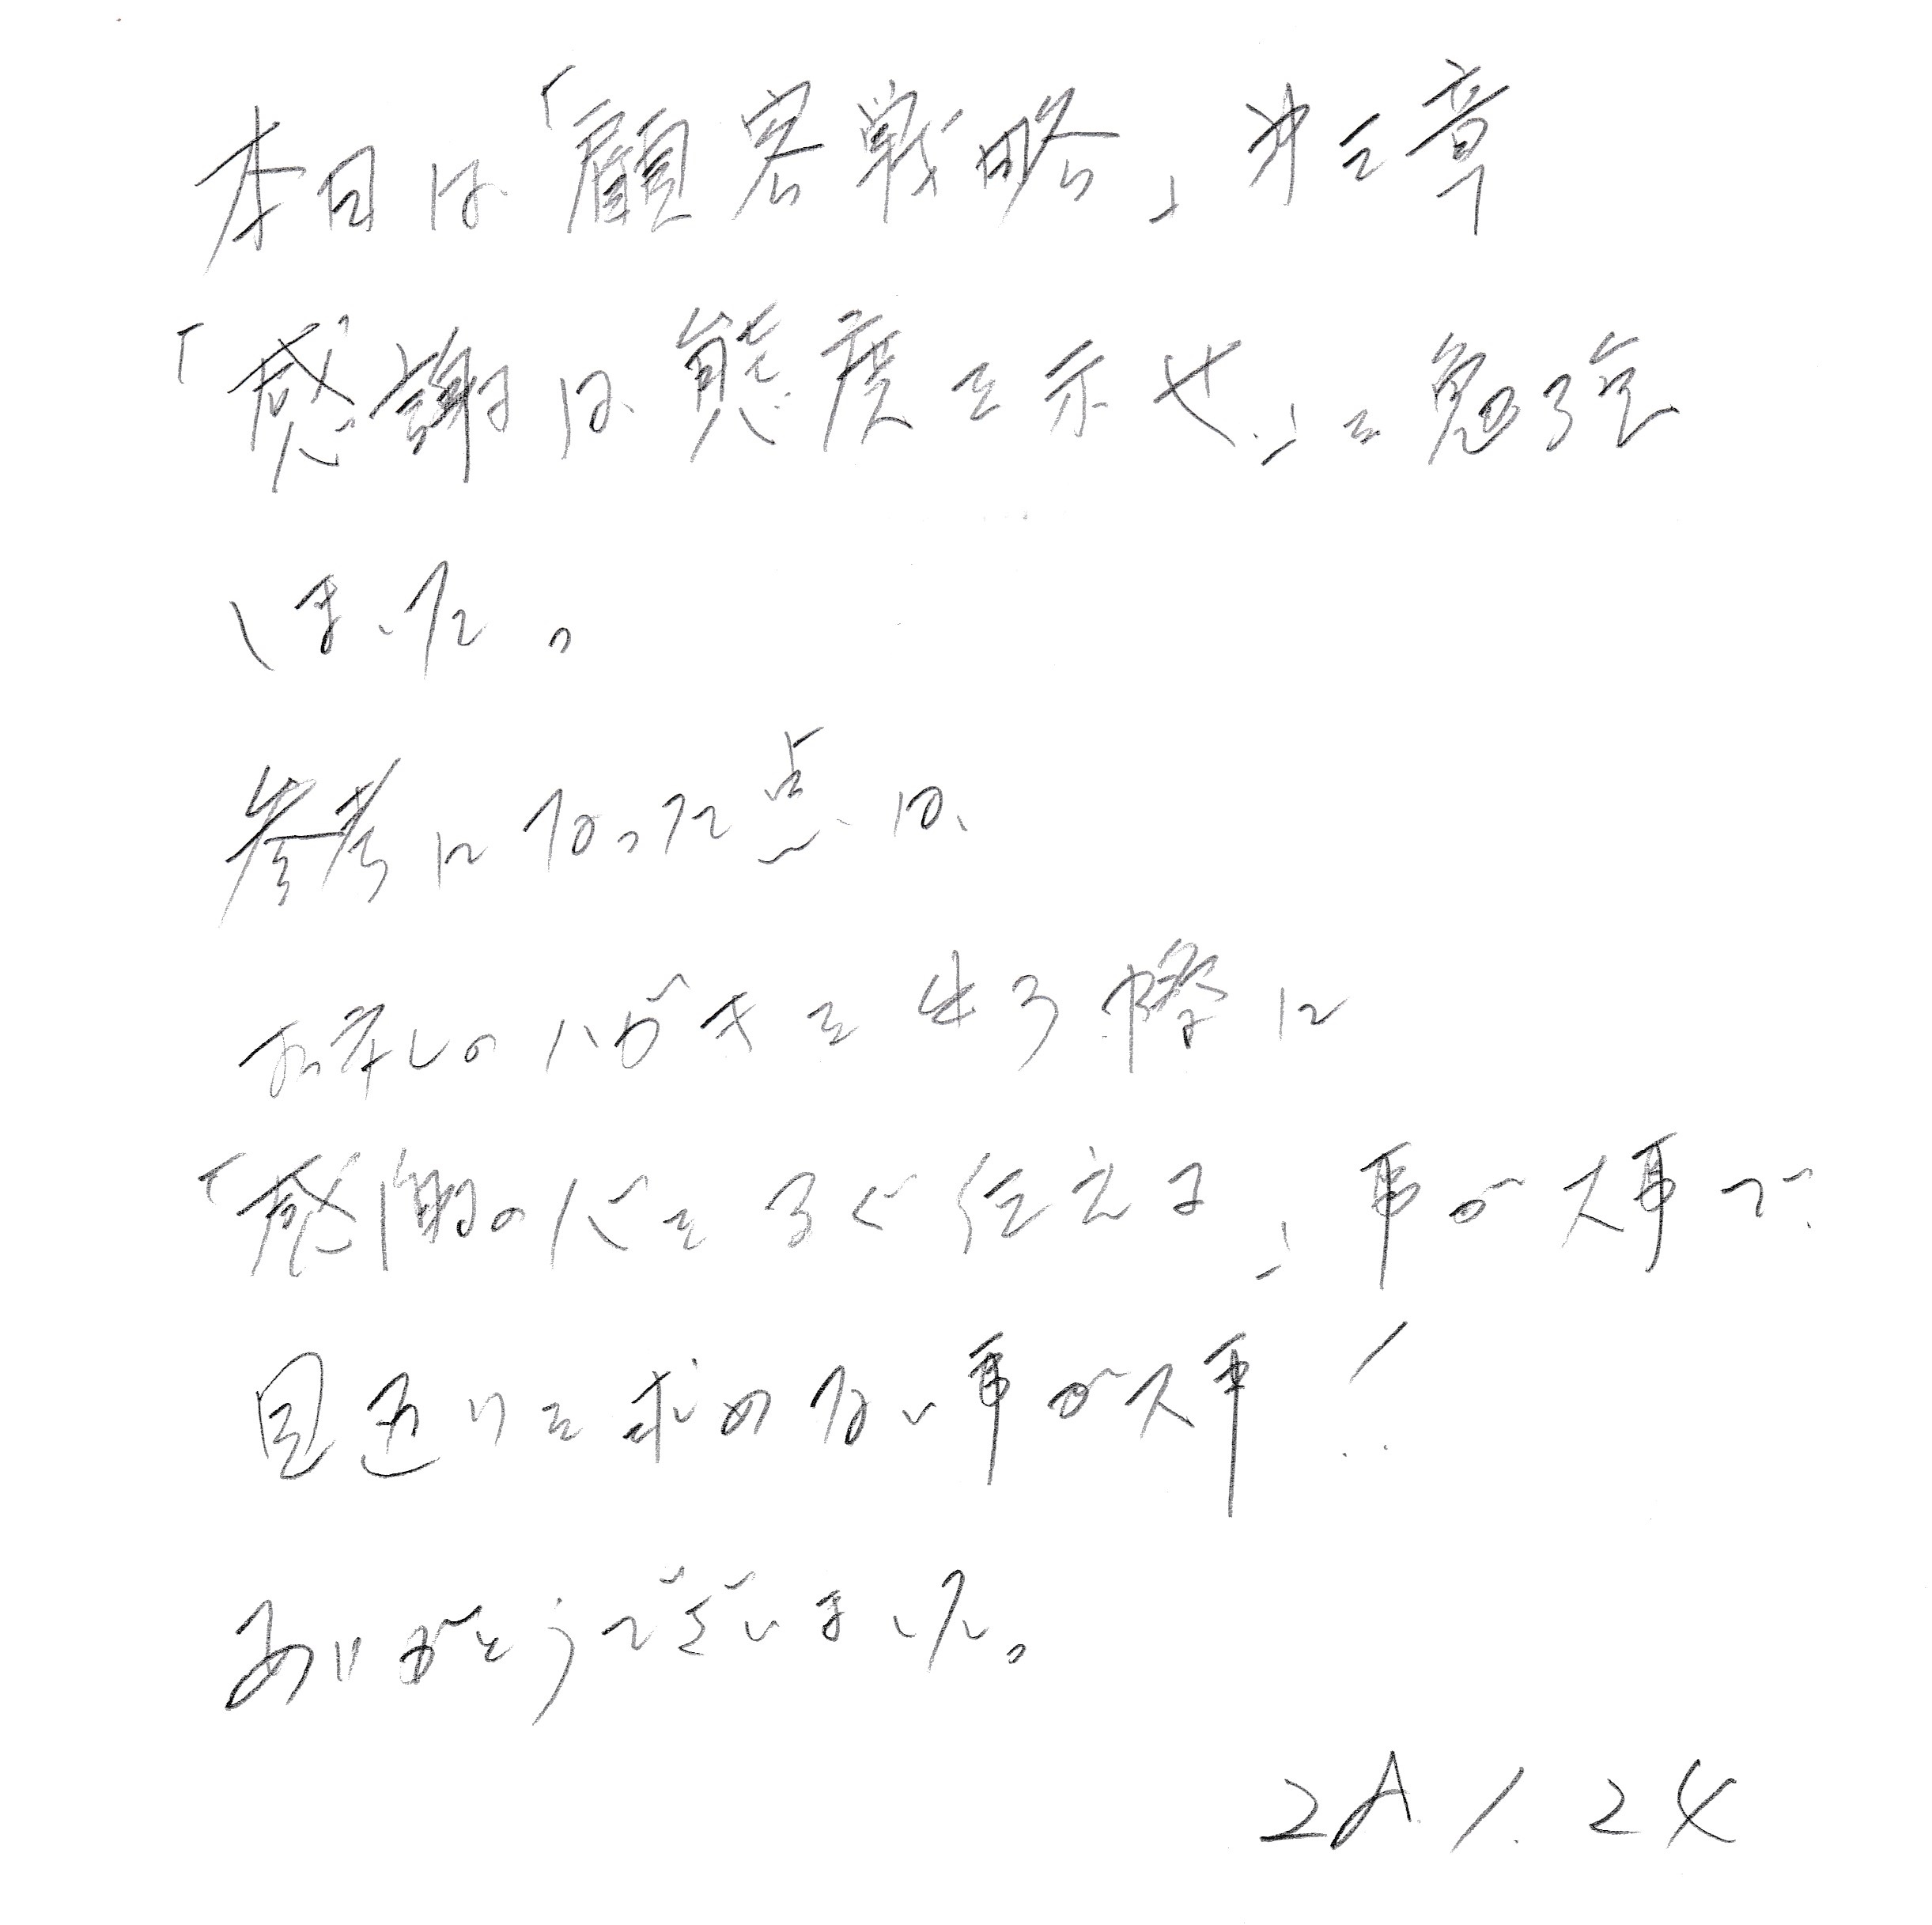 本日は「顧客戦略」第三章
「感謝は態度を示せ」を勉強
しました。
参考になった点は、
お礼のハガキを出す際に
「感謝の心をすぐ伝える」事が大事で
見返りを求めない事が大事!
ありがとうございました。
1.24